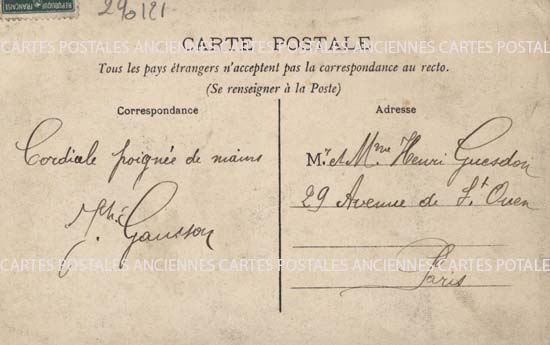 REPUBLIQUE FRANÇAISE
290121
CARTES POSTALES ANCIENNES CARTES POSTALES ANCIENNES CARTES POSTALES
CARTE POSTALE
Tous les pays étrangers n'acceptent pas la correspondance au recto.
(Se renseigner à la Poste)
Correspondance
Cordiale poignée de mains
Gausson
Adresse
Mr et Mme Henri Guesdon
29 Avenue de St Ouen
Paris
CARTES POSTALES ANCIENNES CARTES POSTALES ANCIENNES CARTES POTALES